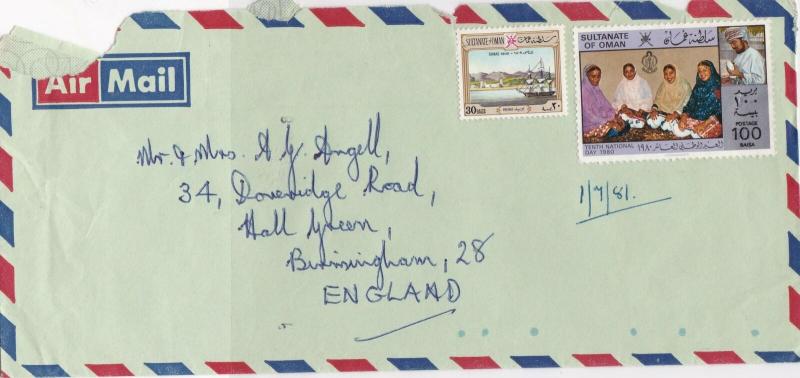 Air Mail
SULTANATE of OMAN سلطنة عمان
30 BAIZA ٣٠
SULTANATE OF OMAN سلطنة عمان
بريد
١٠٠
بيسة
POSTAGE
100
BAISA
TENTH NATIONAL DAY 1980 العيد الوطني العاشر ١٩٨٠
Mr. & Mrs. A G. Angell,
34, Doveridge Road,
Hall Green,
Birmingham, 28
ENGLAND
1/7/81.